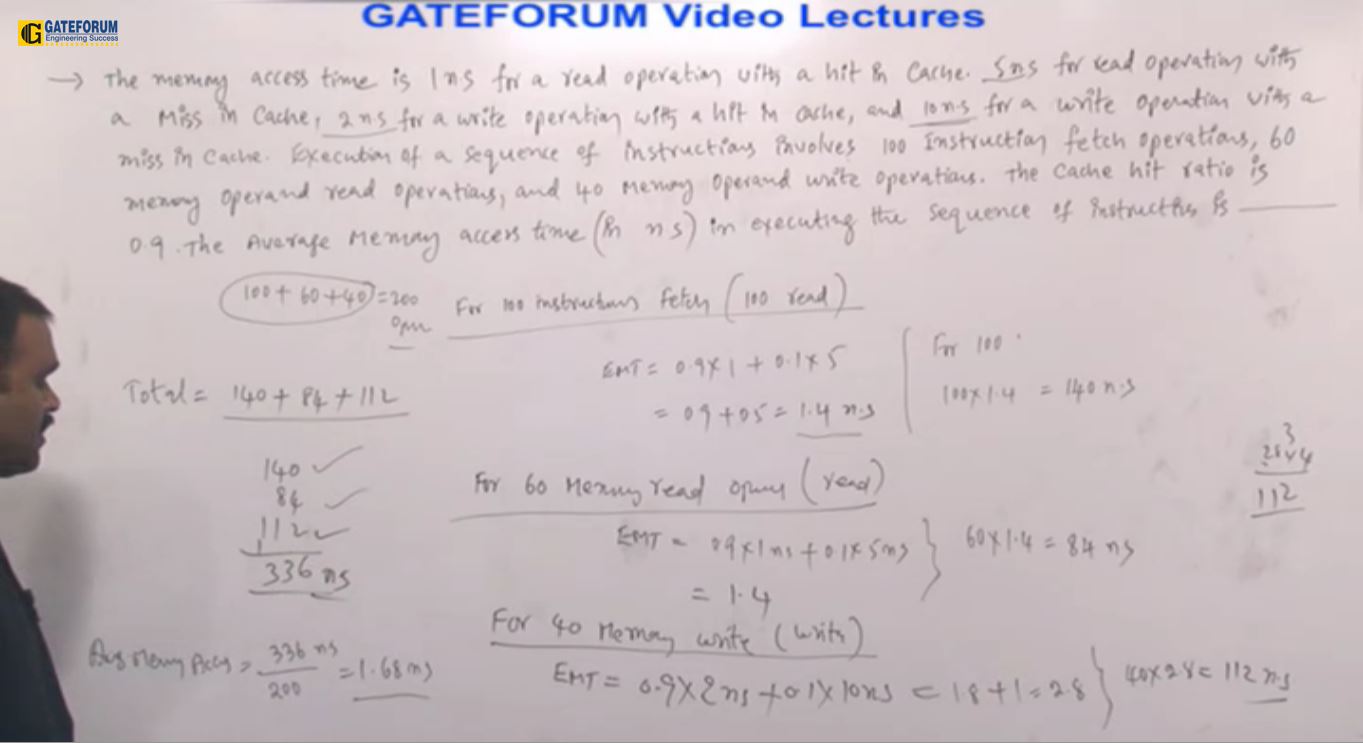 GATEFORUM Video Lectures
GATEFORUM
Engineering Success
→ The memory access time is 1ns for a read operation with a hit in Cache. 5ns for read operation with
a Miss in Cache, 2ns for a write operation with a hit in cache, and 10ns for a write operation with a
miss in Cache. Execution of a sequence of instructions involves 100 Instruction fetch operations, 60
memory operand read operations, and 40 Memory Operand write operations. The Cache hit ratio is
0.9. The Average Memory access time (in ns) in executing the sequence of instructions is ____
100 + 60 + 40 = 200
For 100 instructions Fetch (100 read)
EMT = 0.9×1 + 0.1×5
= 0.9 + 0.5 = 1.4 n.s
For 100
100×1.4 = 140 n.s
Total = 140 + 84 + 112
140 ✓
84 ✓
112 ✓
336 ns
3
28×4
112
For 60 Memory read (read)
EMT = 0.9×1ns + 0.1×5ns
= 1.4
60×1.4 = 84 ns
For 40 Memory write (write)
EMT = 0.9×2ns + 0.1×10ns = 1.8 + 1 = 2.8
40×2.8 = 112 n.s
Avg Memy Accs = 336 ns / 200 = 1.68 ns